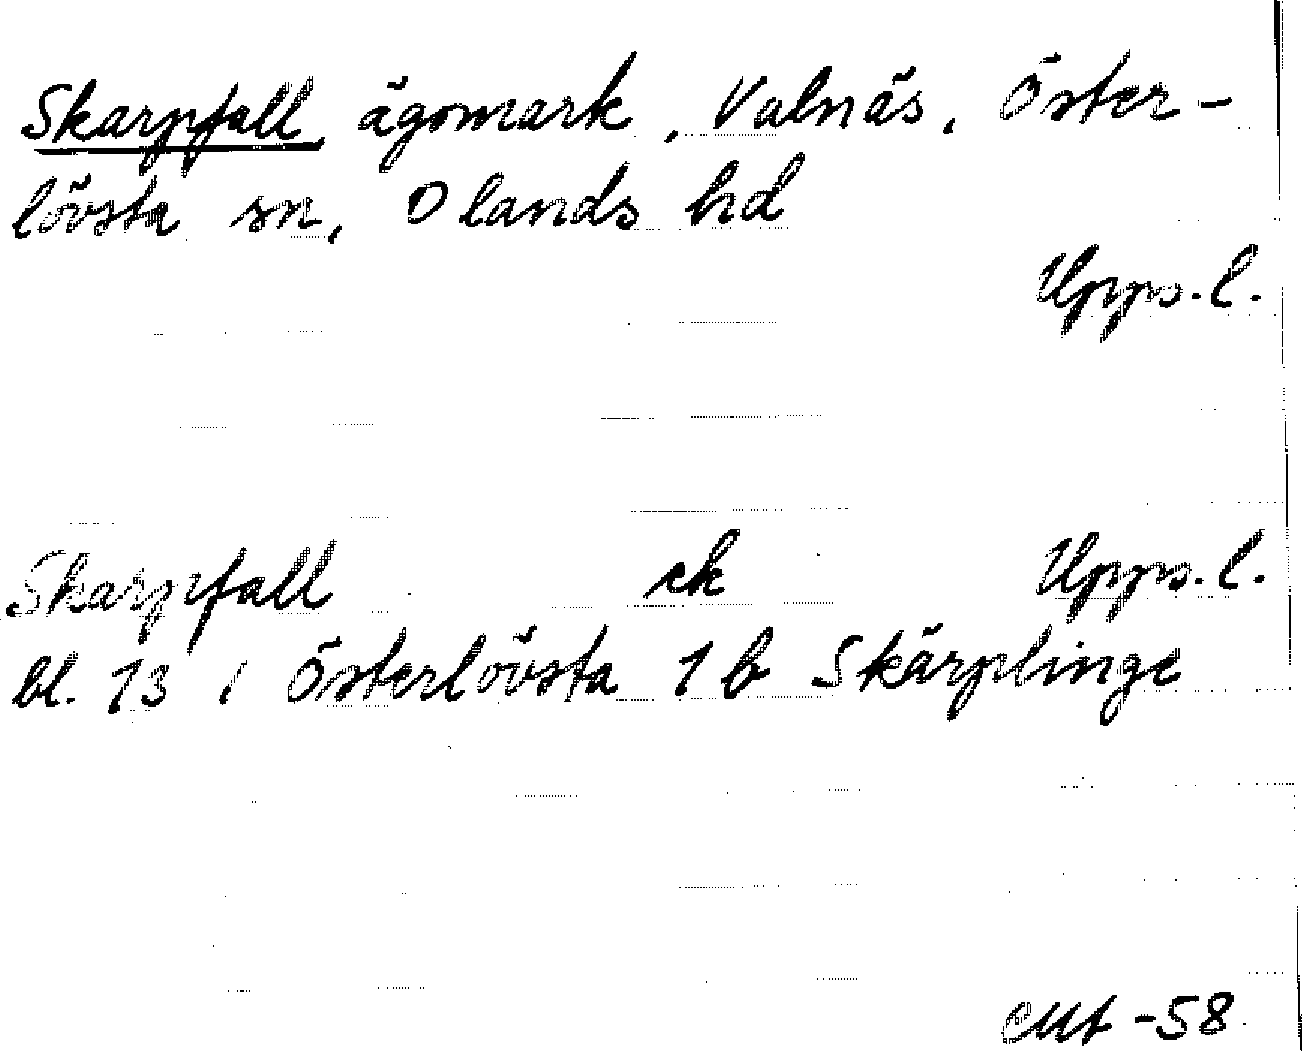 Skarpfall, ägomark, Valnäs, Öster-
lövsta sn, Olands hd
Upps.l.
Skarpfall ek Upps.l.
bl. 13 i Österlövsta 1 b Skärplinge
-58